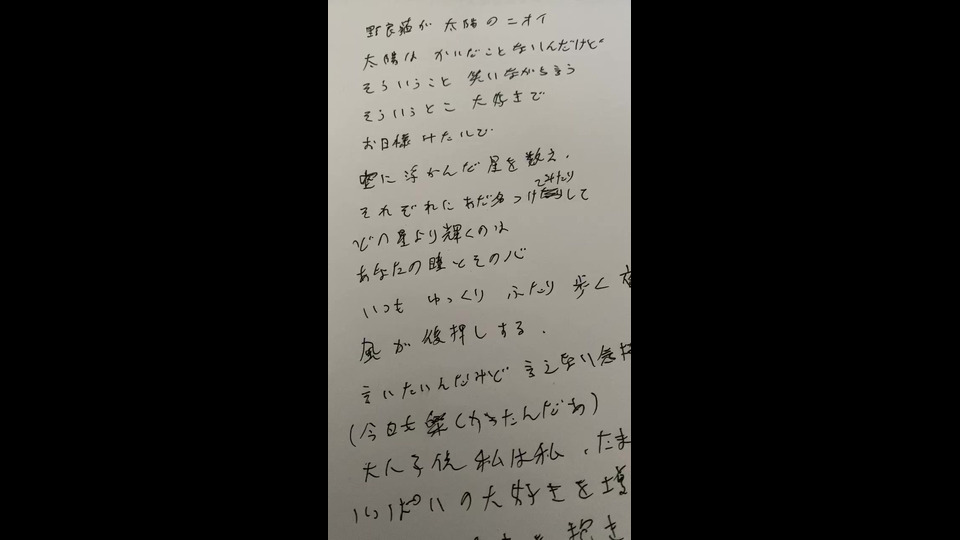 野良猫が 太陽のニオイ
太陽は かいだことないんだけど
そういうこと 笑いながら言う
そういうとこ 大好きで
お日様みたいで
空に浮かんだ星を数え、
それぞれにあだ名つけてみたりして
どの星より輝くのは
あなたの瞳とその心
いつも ゆっくり ふたり 歩く 夜
風が後押しする、
言いたいんだけど 言えない気持
(今日も
大人子供 私は私、たま
いっぱいの大好きを
抱き